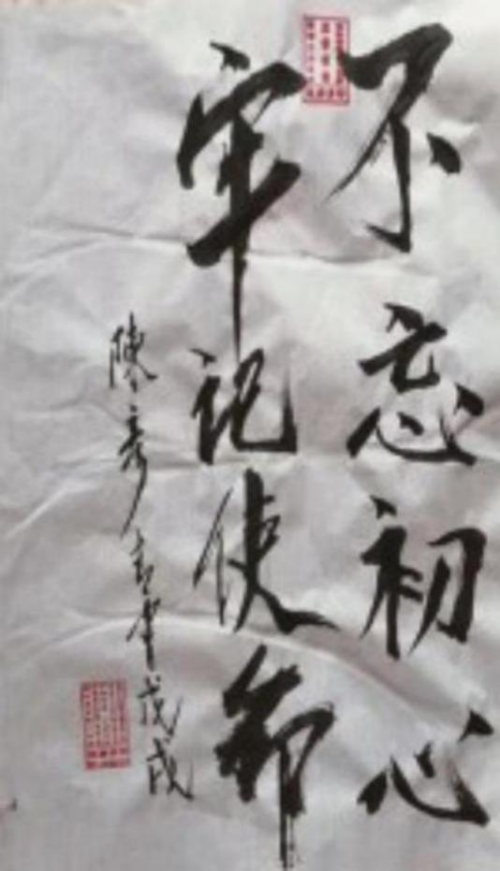 不忘初心
牢记使命
陳彦
戊戌